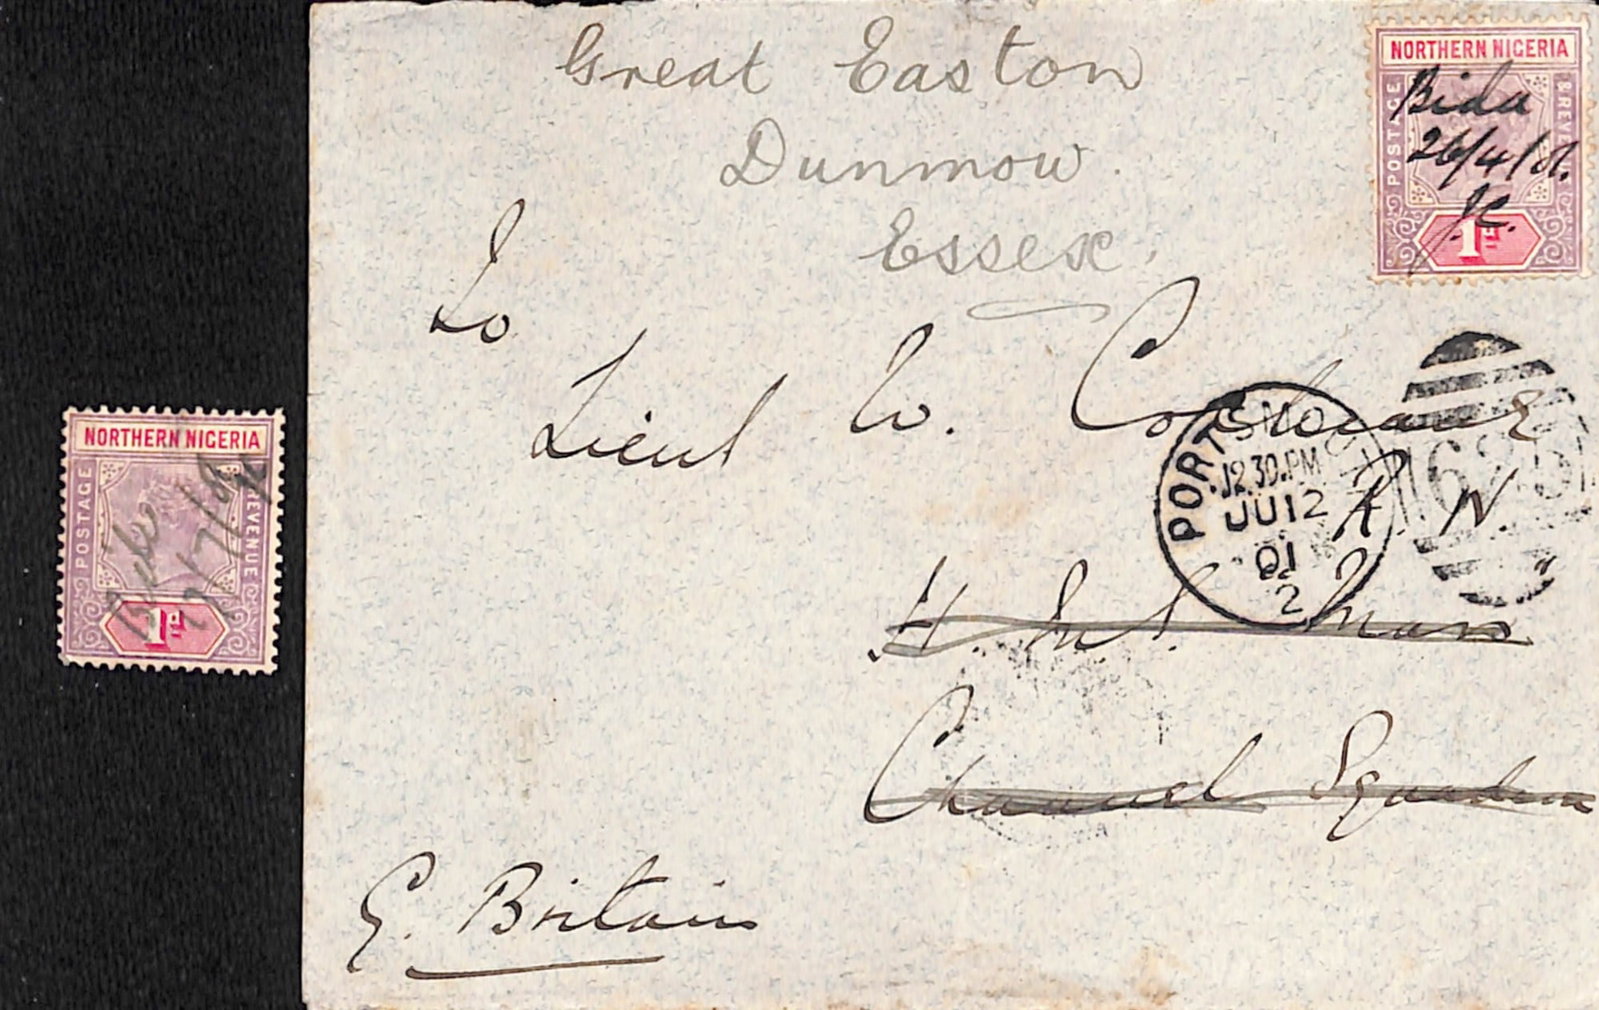 Great Easton
Dunmow.
Essex.
NORTHERN NIGERIA
POSTAGE
& REVENUE
Bida
26/4/01.
J.C.
1d
To
Lieut W.
R. N.
PORTSMOUTH
12.30.PM
JU 12
01
2
H. M. S. Mars
Channel Squadron
G. Britain
NORTHERN NIGERIA
POSTAGE
REVENUE
1d